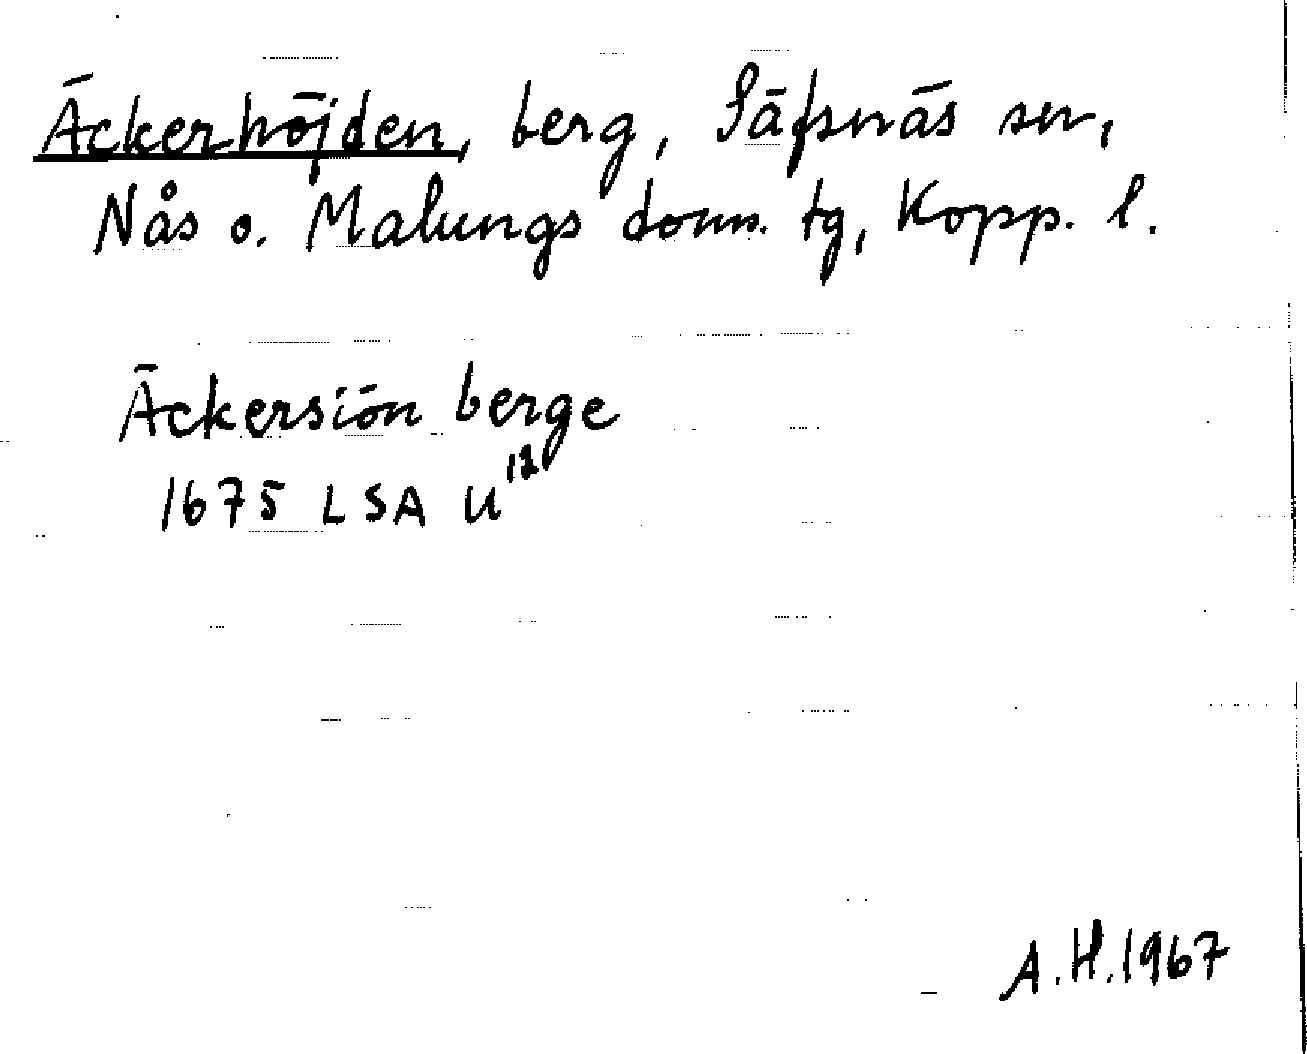 Äckerhöjden, berg, Säfsnäs sn,
Nås o. Malungs doms. tg, Kopp. l.
Äckersiön berge
1675 LSA U 12
A.H. 1967